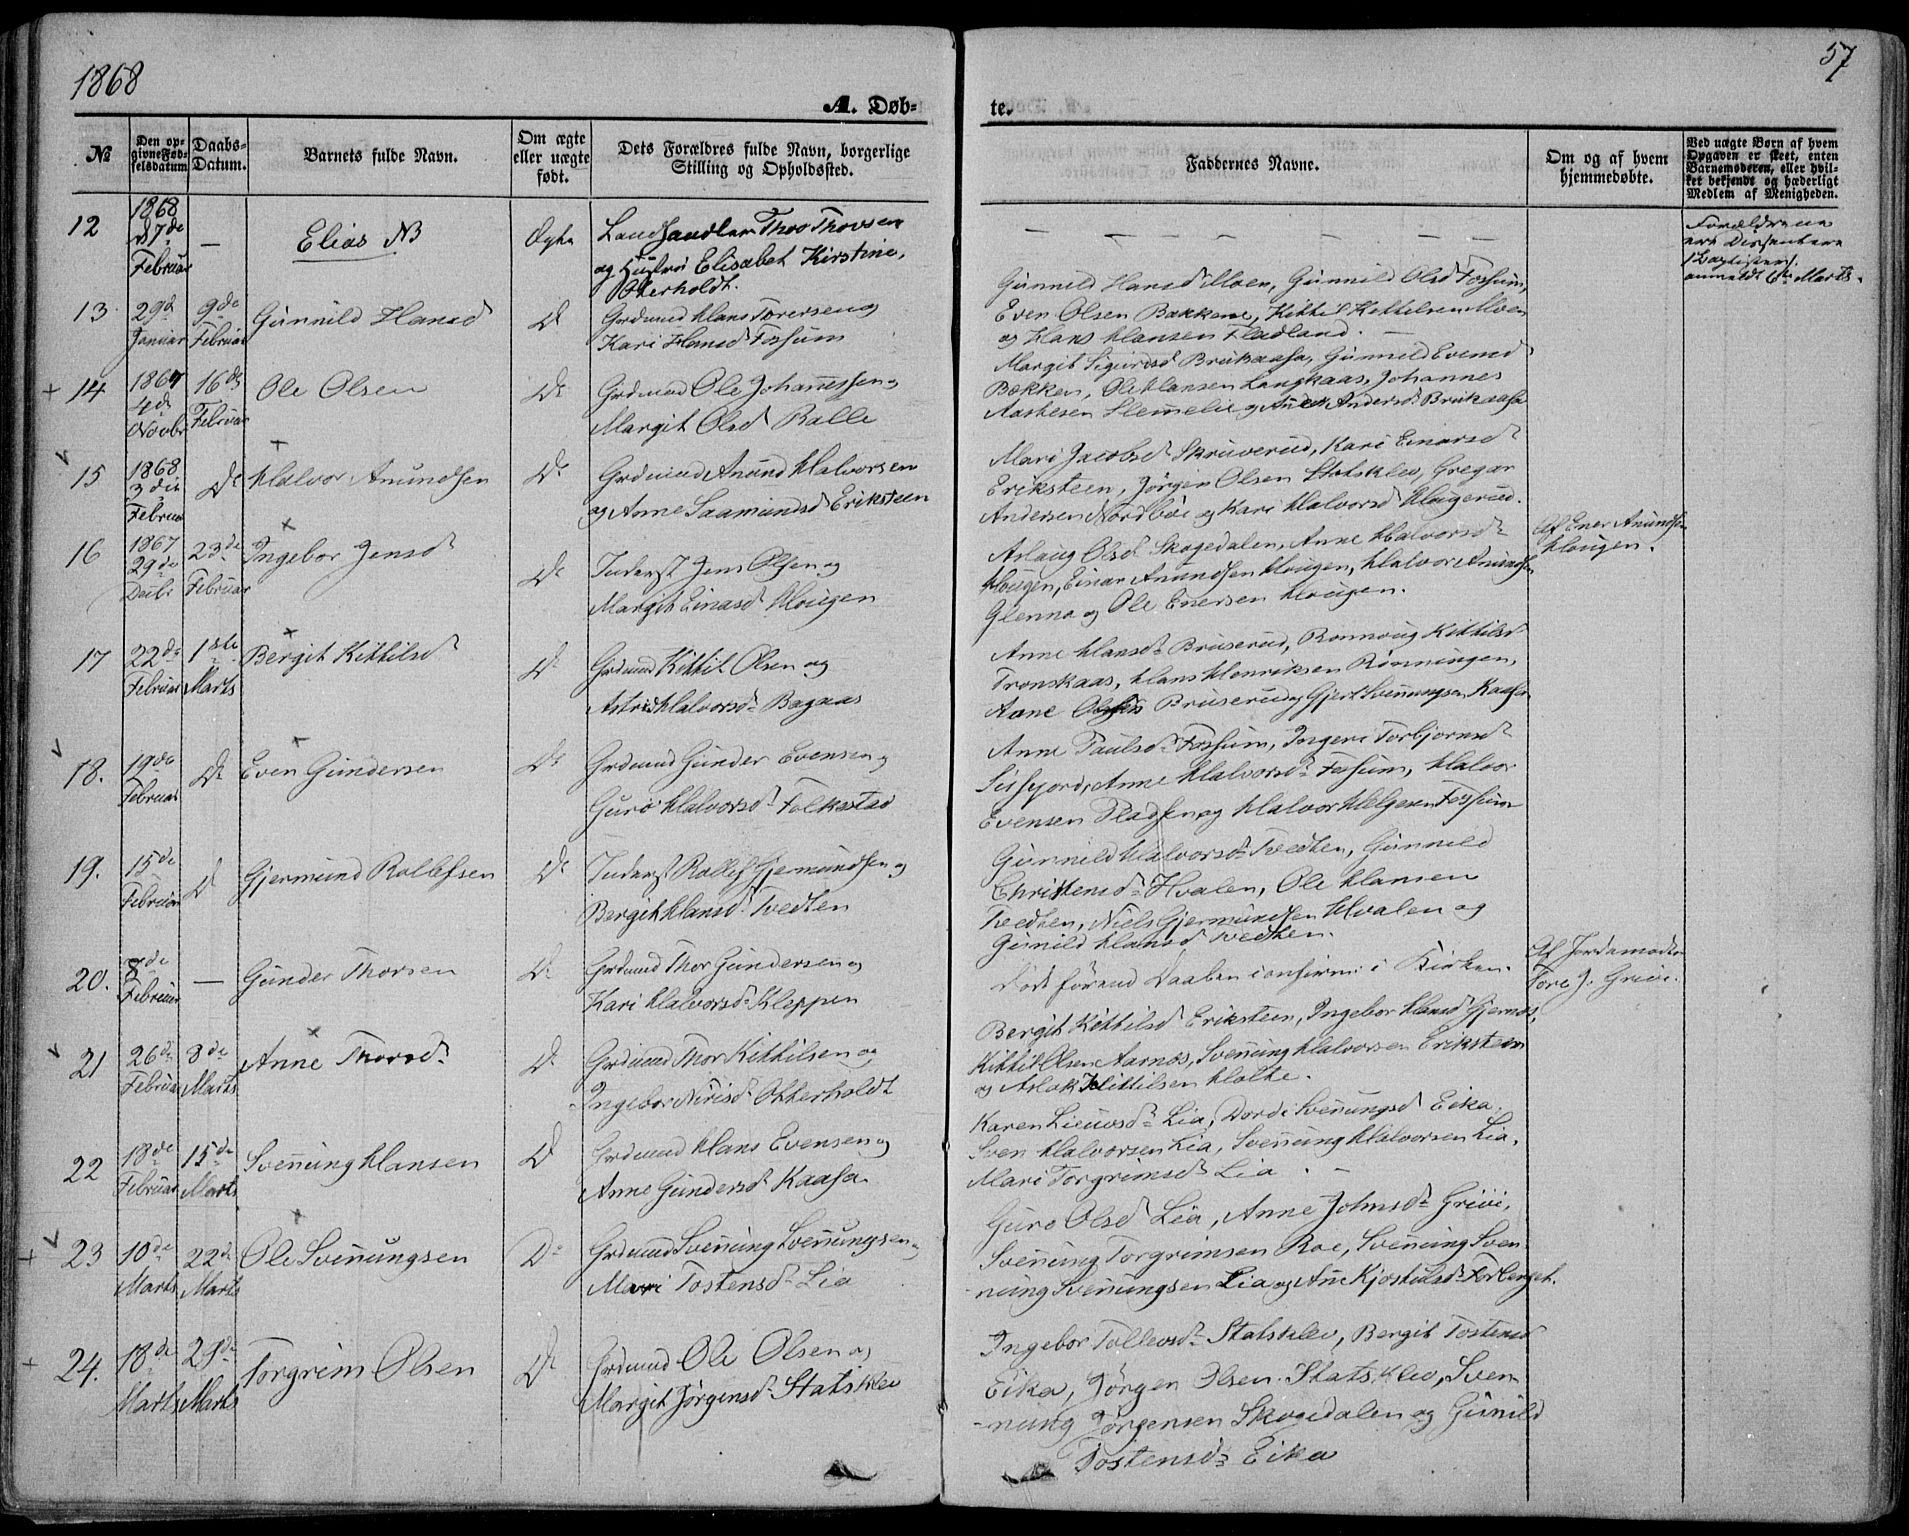 1868
57
A. Døb-
te.
№
Den op-
givne Fød-
selsdatum
Daabs-
Datum.
Barnets fulde Navn.
Om ægte
eller uægte
født.
Dets Forældres fulde Navn, borgerlige
Stilling og Opholdssted.
Faddernes Navne.
Om og af hvem
hjemmedøbte.
Ved uægte Børn af hvem
Opgaven er skeet, enten
Barnemoderen, eller hvil-
ket bekjendt og hæderligt
Medlem af Menigheden.
12
1868
Februar
—
Elias NB
Ægte
Landhandler Thor Thorsen
og Hustru Elisabet Kirstine,
Oterholdt.
— — — — — — —
Forældrene
ere Dissentere
anmeldt 6te Marts.
13.
29de
Januar
9de
Februar
Gunnild Hansd
Do
Grdmand Hans Torersen og
Kari Hansd Fossum
Gunnild Hansd Moen, Gunnild Olsd Fossum,
Even Olsen Bakkene, Kittil Kittilsen Moen
og Hans Hansen Fladland. —
14
1867
4de
Novbr
16de
Februar
Ole Olsen
Do
Grdmand Ole Johannessen og
Margit Olsd Balle
Margit Sigurdsd Brukaasa, Gunnild Evensd
Bækken, Ole Hansen Langkaas, Johannes
Aslesen Slemelie og Andersd Brukaasa
15
1868
3die
Februar
Do
Halvor Anundsen
Do
Grdmand Anund Halvorsen
og Anne Saamundsd Eriksteen
Mari Jacobsd Skruverud, Kari Einarsd
Eriksteen, Jørgen Olsen Statsklev, Gregar
Andersen Nordbøe og Kari Halvorsd Haugerud.
16
1867
29de
Decbr
23de
Februar
Ingebor Jensd
Do
Inderst Jens Olsen og
Margit Einarsd Hougen
Aslaug Olsd Skogedalen, Anne Halvorsd
Hougen, Einar Anundsen Hougen, Halvor Anundsen
Glenna og Ole Enersen Hougen.
Af Ener Anundsen
Hougen.
17
22de
Februar
1ste
Marts
Bergit Kittilsd
Do
Grdmand Kittil Olsen og
Astrid Halvorsd Bagaas
Anne Hansd Bruserud, Ronnoug Kittilsd
Tronskaas, Hans Henriksen Rønningen,
Anne Bruserud og Gjert Svenungsen Kaasa
18.
19de
Februar
Do
Even Gundersen
Do
Grdmand Gunder Evensen og
Guro Halvorsd Folkestad
Anne Paulsd Fossum, Ingeri Torbjørnsd
Anne Halvorsd Fossum, Halvor
Evensen Pladsen og Halvor Helgesen Fossum
19.
15de
Februar
Do
Gjermund Rollefsen
Do
Inderst Rollef Gjermundsen og
Bergit Hansd Tvedten
Gunnild Halvorsd Tvedten, Gunnild
Christensd Hvalen, Ole Hansen
Tvedten, Niels Gjermundsen Hvalen og
Gunild Hansd Tvedten.
20.
Februar
—
Gunder Thorsen
Do
Grdmand Thor Gundersen og
Kari Halvorsd Kleppen
Døde førend Daaben confirm: i Kirken.
Af Jordemoder
Tore J. Grivi.
21
26de
Februar
8de
Marts
Anne Thorsd
Do
Grdmand Thor Kittilsen og
Ingebor Nirisd Otterholdt
Bergit Kittilsd Eriksteen, Ingebor Hansd Gjernæs,
Kittil Olsen Aarnæs, Svenung Halvorsen Eriksteen
og Aslak Kittilsen Holte.
22
18de
Februar
15de
Marts
Svenung Hansen
Do
Grdmand Hans Evensen og
Anne Gundersd Kaasa
Karen Lieuvsd Lia, Dordi Svenungsd Eika.
Sven Halvorsen Lia, Svenung Halvorsen Lia,
Mari Torgrimsd Lia. —
23
10de
Marts
22de
Marts
Ole Svenungsen
Do
Grdmand Svenung Svenungsen og
Mari Tostensd Lia
Guro Olsd Lia, Anne Johnsd Grivi,
Svenung Torgrimsen Roe, Svenung Sven-
nung Svenungsen Lia og Ane Kjostulsd Forberget.
24.
18de
Marts
Marts
Torgrim Olsen
Do
Grdmand Ole Olsen og
Margit Jørgensd Statsklev
Ingebor Tollevsd Statsklev, Bergit Tostensd
Eika, Jørgen Olsen Statsklev, Sven-
-nung Jørgensen Skogedalen og Gunild
Tostensd Eika